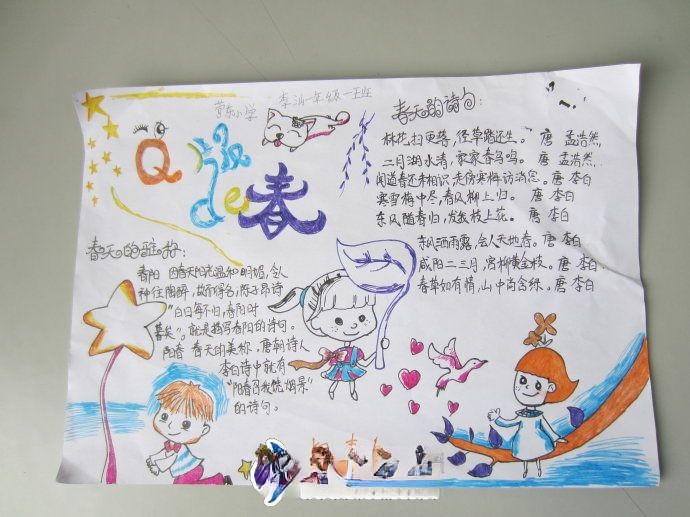 营东小学 李 一年级一班
Q
de春
春天的诗句：
林花扫更落，径草踏还生。 唐 孟浩然
二月湖水清，家家春鸟鸣。 唐 孟浩然
闻道春还未相识，走傍寒梅访消息。 唐 李白
寒雪梅中尽，春风柳上归。 唐 李白
东风随春归，发我枝上花。 唐 李白
东风洒雨露，会人天地春。唐 李白
咸阳二三月，宫柳黄金枝。唐 李白
春草如有情，山中尚含绿。唐 李白
春天的
春阳 因春天阳光温和明媚，令人
神往陶醉，故而得名，陈子昂诗
"白日每不归，春阳时
暮矣"。就是描写春阳的诗句。
阳春 春天的美称，唐朝诗人
李白诗中就有
"阳春召我以烟景"
的诗句。